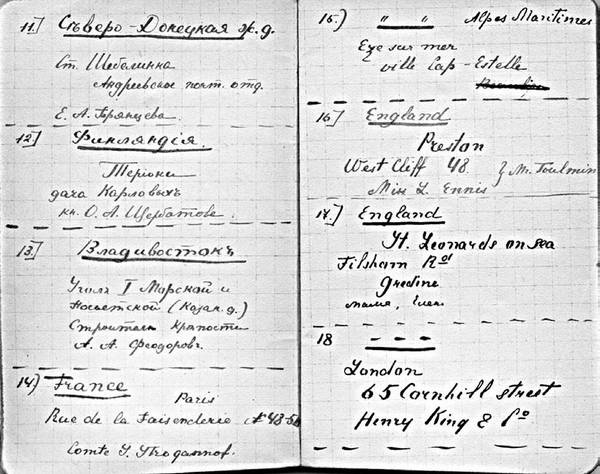 11.] Съверо-Донецкая ж. д.
Ст. Шебелинка
Андреевское почт. отд.
Е. А. Брянцева.
12.] Финляндія.
Теріоки
дача Карловыхъ
кн. О. А. Щербатова.
13.] Владивостокъ
Уголъ I Морской и
Посьетской (Казан. д.)
Строителю крѣпости
А. А. Феодоровъ.
14.) France
Paris
Rue de la Faisenderie № 48-50
Comte S. Strogannof.
15.) " " Alpes Maritimes
Eze sur mer
ville Cap-Estelle
16.] England
Preston
West Cliff 48. } Mr. Toulmin
Miss L. Ennis
17.) England
St. Leonards on sea
Filsham Rd
Gredine
мама,
18 - - -
London
65 Cornhill street
Henry King & Co